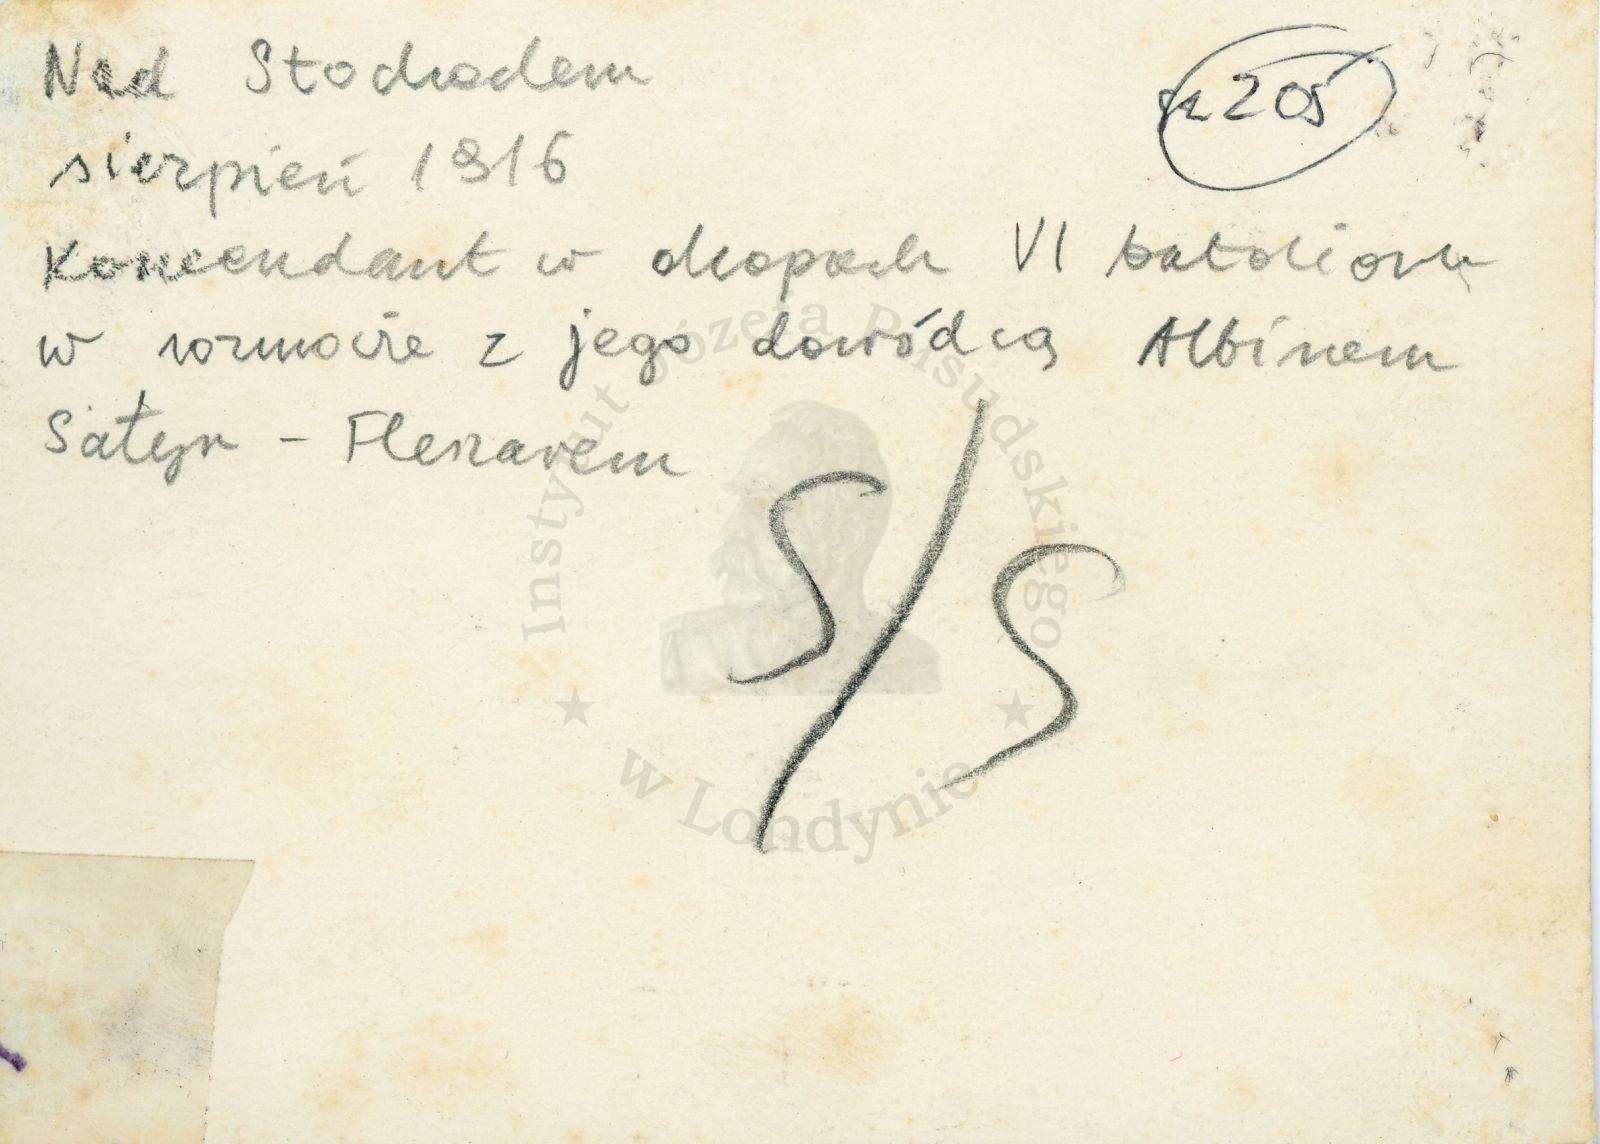 Nad Stochodem
sierpień 1916
Komendant w okopach VI batalionu
w rozmowie z jego dowódcą Albinem
Satyr - Fleszarem
205
S/S
Instytut Józefa Piłsudskiego
w Londynie